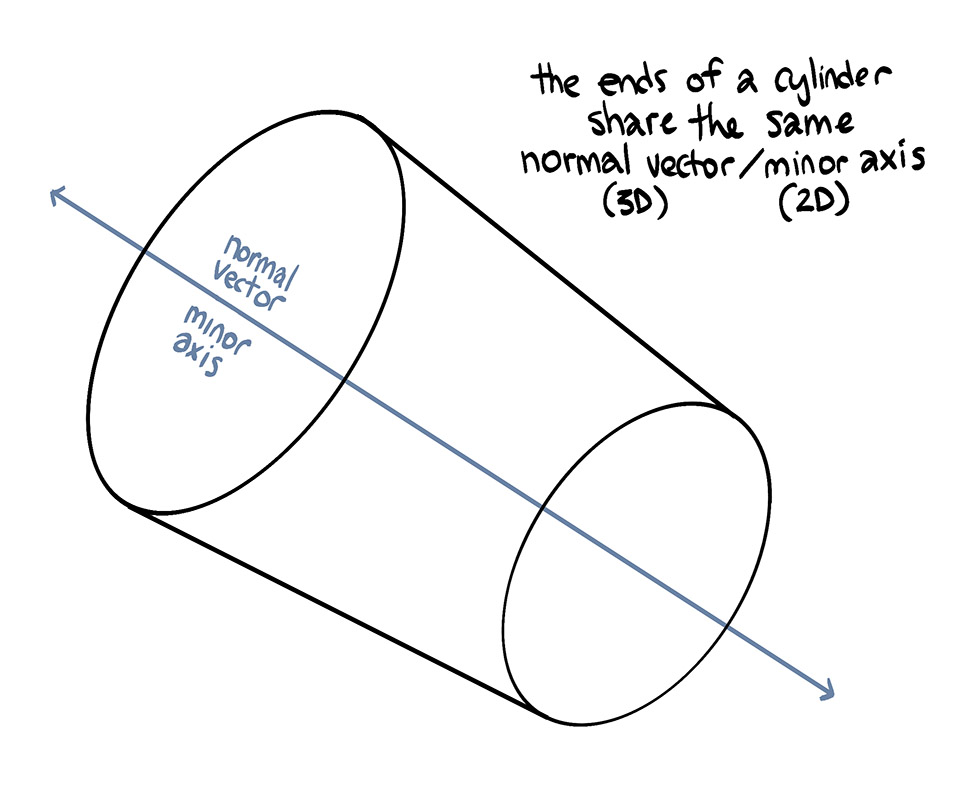 the ends of a cylinder
share the same
normal vector/minor axis
(3D) (2D)
normal
vector
minor
axis